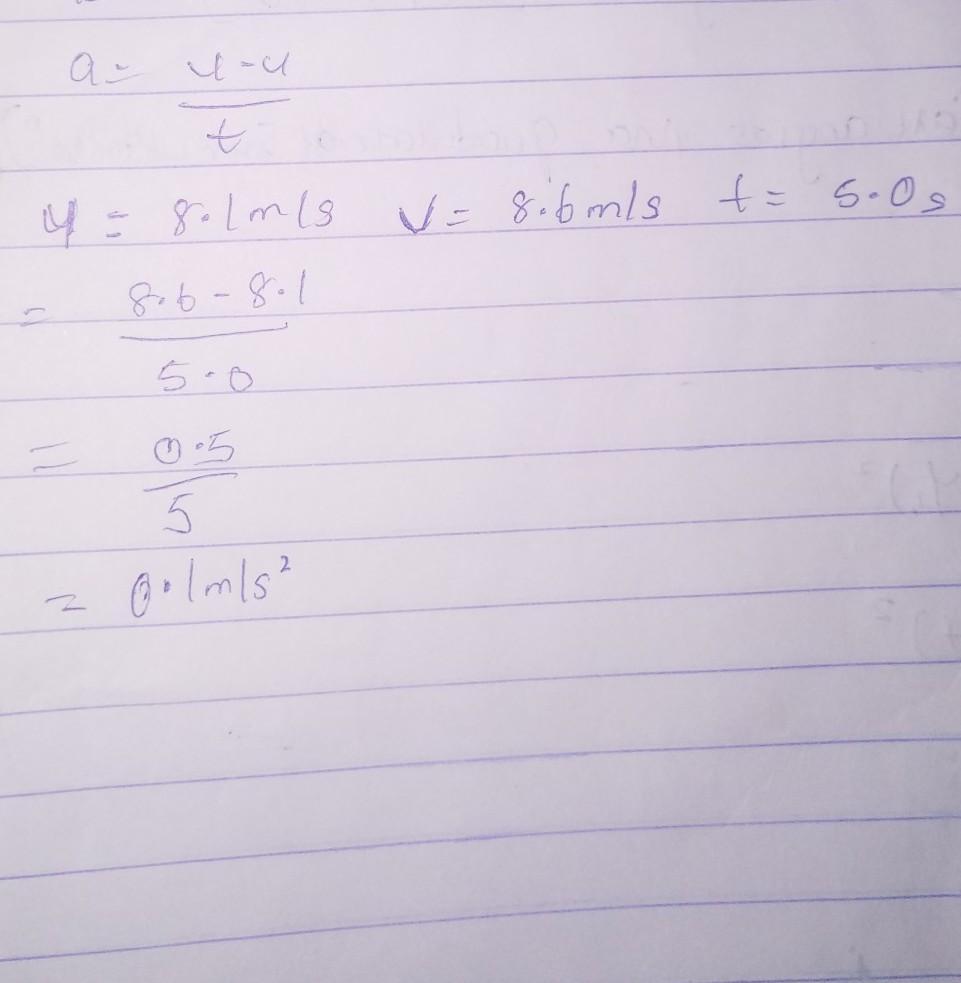 a = v-u
t
u = 8.1m/s v = 8.6m/s t = 5.0s
= 8.6 - 8.1
5.0
= 0.5
5
= 0.1m/s²